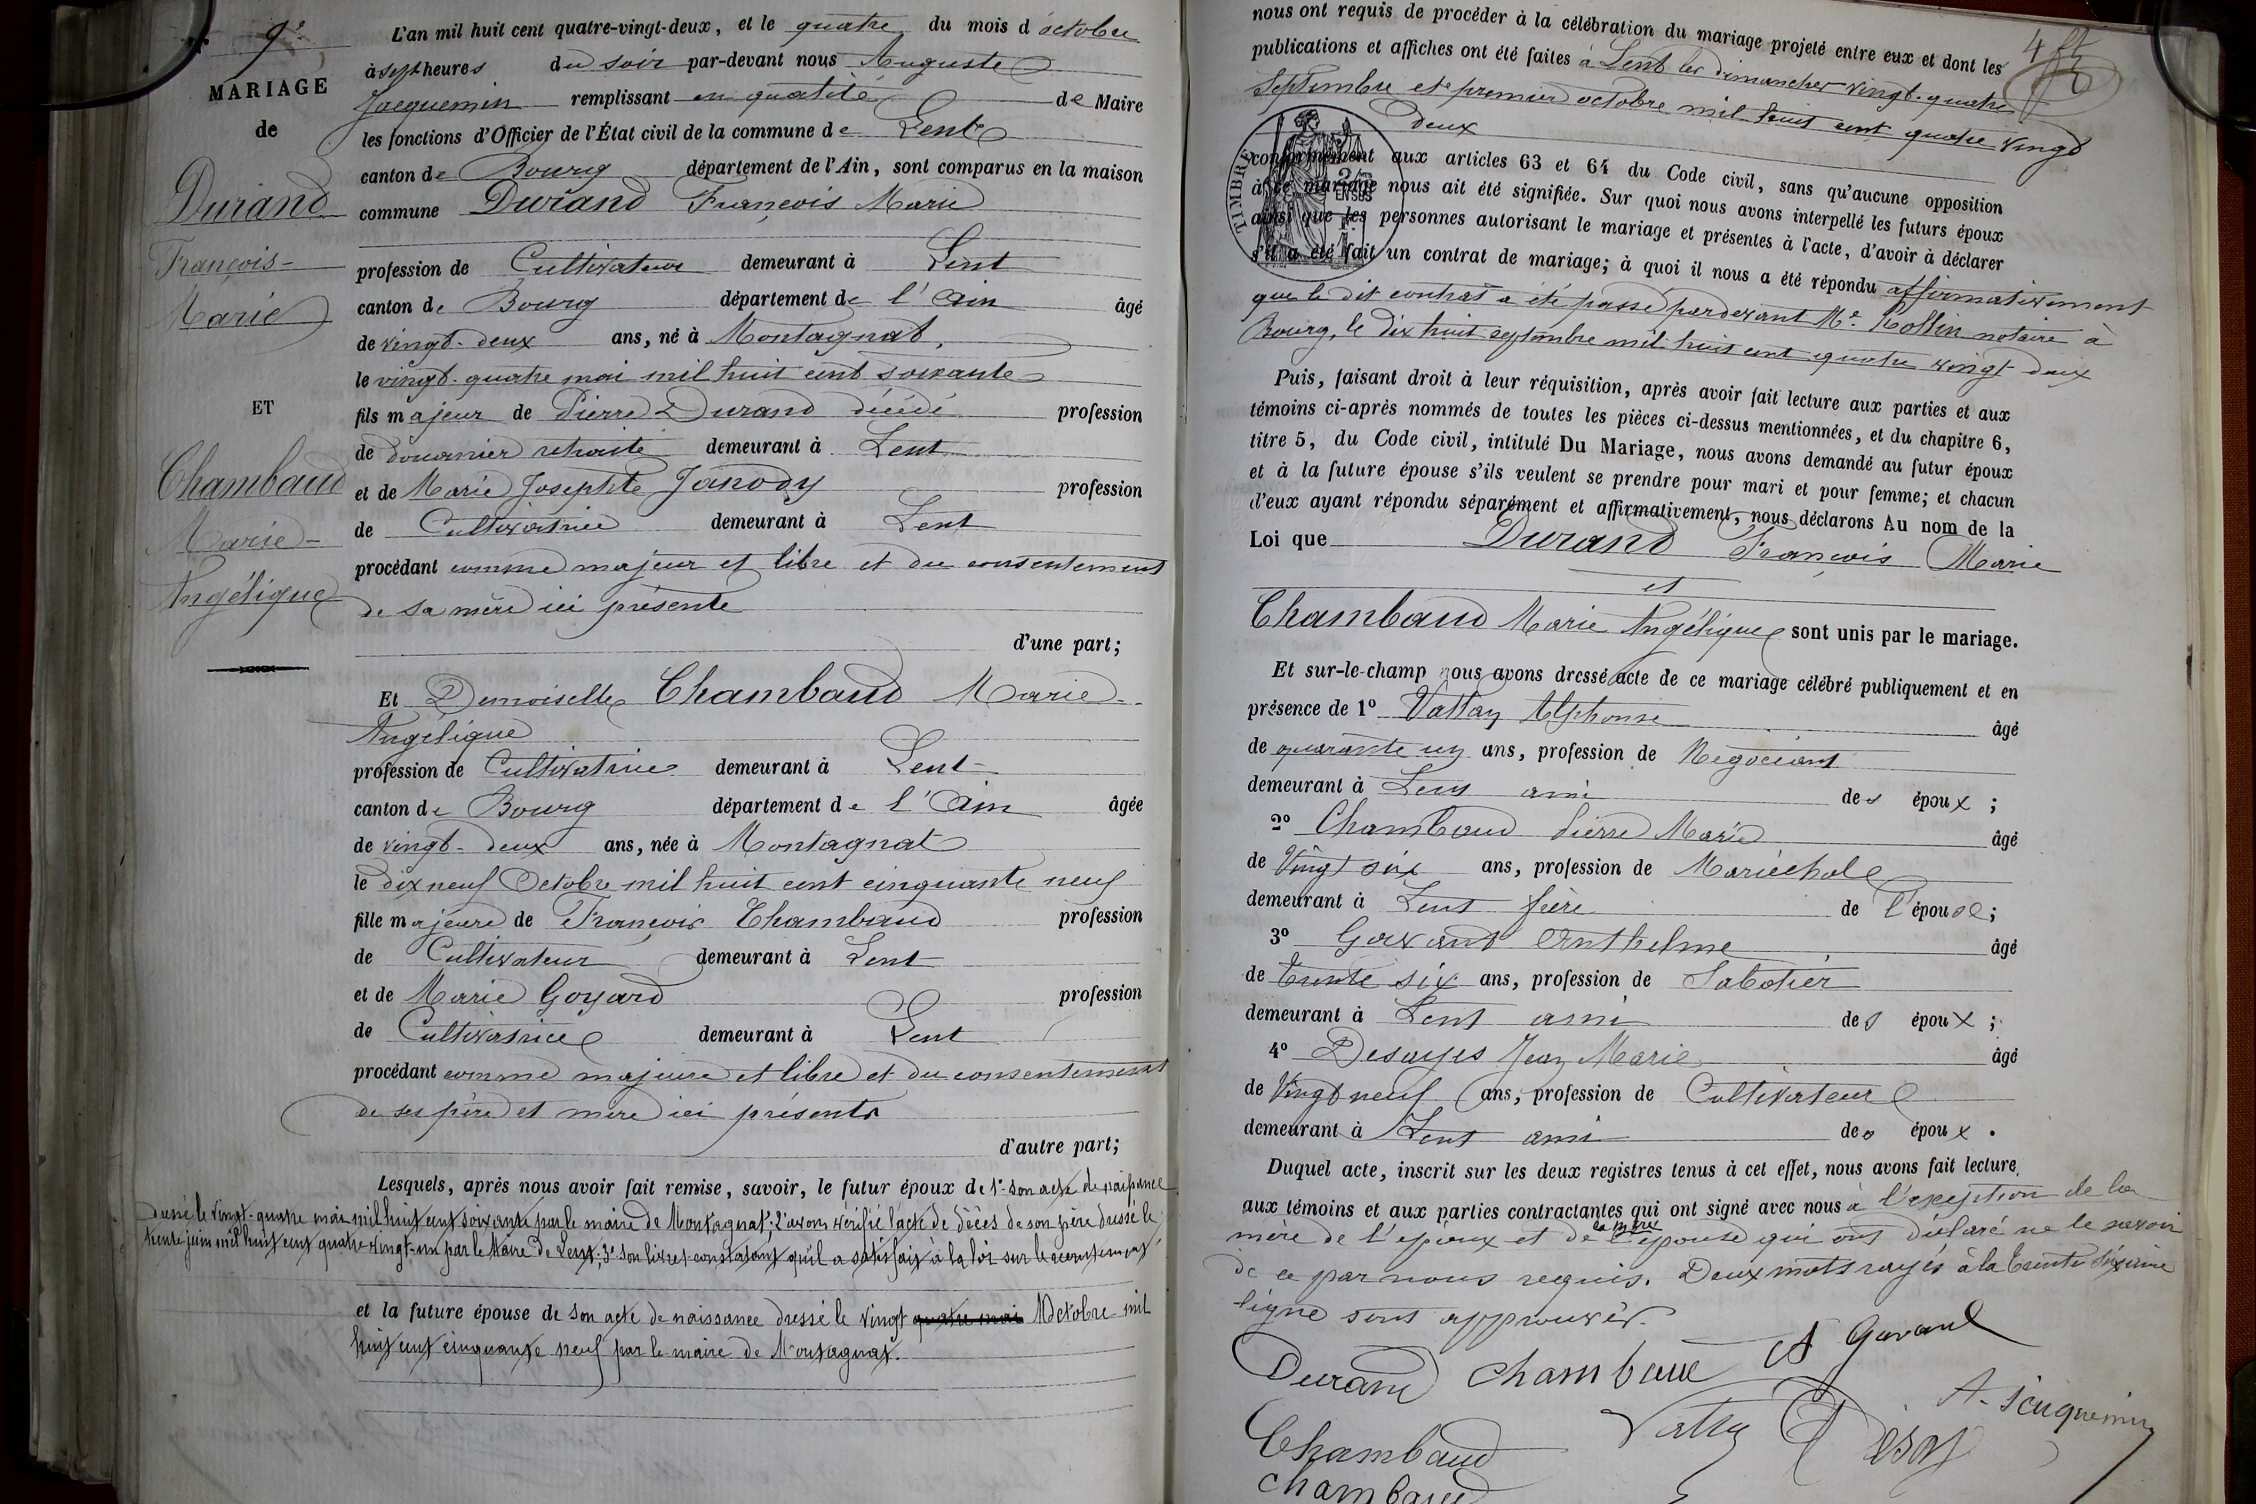 9e
MARIAGE
de
Durand
François-
Marie
ET
Chambaud
Marie-
Angélique
L'an mil huit cent quatre-vingt-deux, et le quatre du mois d'octobre
à sept heures du soir par-devant nous Auguste
Jacquemin remplissant en qualité de Maire
les fonctions d'Officier de l'État civil de la commune de Lent
canton de Bourg département de l'Ain, sont comparus en la maison
commune Durand François Marie
profession de Cultivateur demeurant à Lent
canton de Bourg département de l'Ain âgé
de vingt-deux ans, né à Montagnat,
le vingt-quatre mai mil huit cent soixante
fils majeur de Pierre Durand décédé profession
de douanier retraité demeurant à Lent
et de Marie Josephte Janody profession
de Cultivatrice demeurant à Lent
procédant comme majeur et libre et du consentement
de sa mère ici présente
d'une part;
Et Demoiselle Chambaud Marie-
Angélique
profession de Cultivatrice demeurant à Lent
canton de Bourg département de l'Ain âgée
de vingt-deux ans, née à Montagnat
le dix neuf Octobre mil huit cent cinquante neuf
fille majeure de François Chambaud profession
de Cultivateur demeurant à Lent
et de Marie Goyard profession
de Cultivatrice demeurant à Lent
procédant comme majeure et libre et du consentement
de ses père et mère ici présents
d'autre part;
Lesquels, après nous avoir fait remise, savoir, le futur époux de 1° son acte de naissance
dressé le vingt-quatre mai mil huit cent soixante par le maire de Montagnat; 2° avons vérifié l'acte de décès de son père dressé le
trente juin mil huit cent quatre-vingt-un par le Maire de Lent; 3° son livret constatant qu'il a satisfait à la loi sur le recrutement
et la future épouse de son acte de naissance dressé le vingt quatre mai Octobre mil
huit cent cinquante neuf par le maire de Montagnat.
nous ont requis de procéder à la célébration du mariage projeté entre eux et dont les
publications et affiches ont été faites à Lent les dimanches vingt-quatre
Septembre et premier octobre mil huit cent quatre vingt
deux
conformément aux articles 63 et 64 du Code civil, sans qu'aucune opposition
à ce mariage nous ait été signifiée. Sur quoi nous avons interpellé les futurs époux
ainsi que les personnes autorisant le mariage et présentes à l'acte, d'avoir à déclarer
s'il a été fait un contrat de mariage; à quoi il nous a été répondu affirmativement
que le dit contrat a été passé pardevant Me Rollin notaire à
Bourg, le dix huit septembre mil huit cent quatre vingt deux
TIMBRE
Puis, faisant droit à leur réquisition, après avoir fait lecture aux parties et aux
témoins ci-après nommés de toutes les pièces ci-dessus mentionnées, et du chapitre 6,
titre 5, du Code civil, intitulé Du Mariage, nous avons demandé au futur époux
et à la future épouse s'ils veulent se prendre pour mari et pour femme; et chacun
d'eux ayant répondu séparément et affirmativement, nous déclarons Au nom de la
Loi que Durand François Marie
et
Chambaud Marie Angélique sont unis par le mariage.
Et sur-le-champ nous avons dressé acte de ce mariage célébré publiquement et en
présence de 1° Vattay Alphonse âgé
de quarante un ans, profession de Négociant
demeurant à Lent ami des époux;
2° Chambaud Pierre Marie âgé
de Vingt six ans, profession de Maréchal
demeurant à Lent frère de l'épouse;
3° Gavand Anthelme âgé
de trente six ans, profession de Sabotier
demeurant à Lent ami des époux;
4° Desayes Jean Marie âgé
de Vingt neuf ans, profession de Cultivateur
demeurant à Lent ami des époux.
Duquel acte, inscrit sur les deux registres tenus à cet effet, nous avons fait lecture
aux témoins et aux parties contractantes qui ont signé avec nous à l'exception de la
mère de l'époux et de la mère l'épouse qui ont déclaré ne le savoir
de ce par nous requis. Deux mots rayés à la trente sixième
ligne sont approuvés.
Durand Chambaud A Gavand
A. Jacquemin
Chambaud
Chambaud